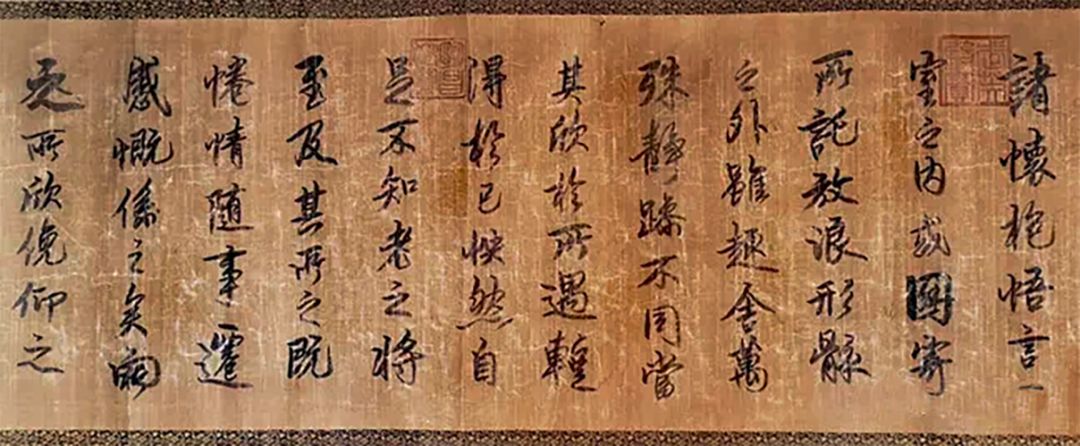 諸懷抱悟言一
室之内或因寄
所託放浪形骸
之外雖趣舍萬
殊靜躁不同當
其欣於所遇蹔
得於己怏然自
足不知老之將
至及其所之既
惓情隨事遷
感慨係之矣向
之所欣俛仰之